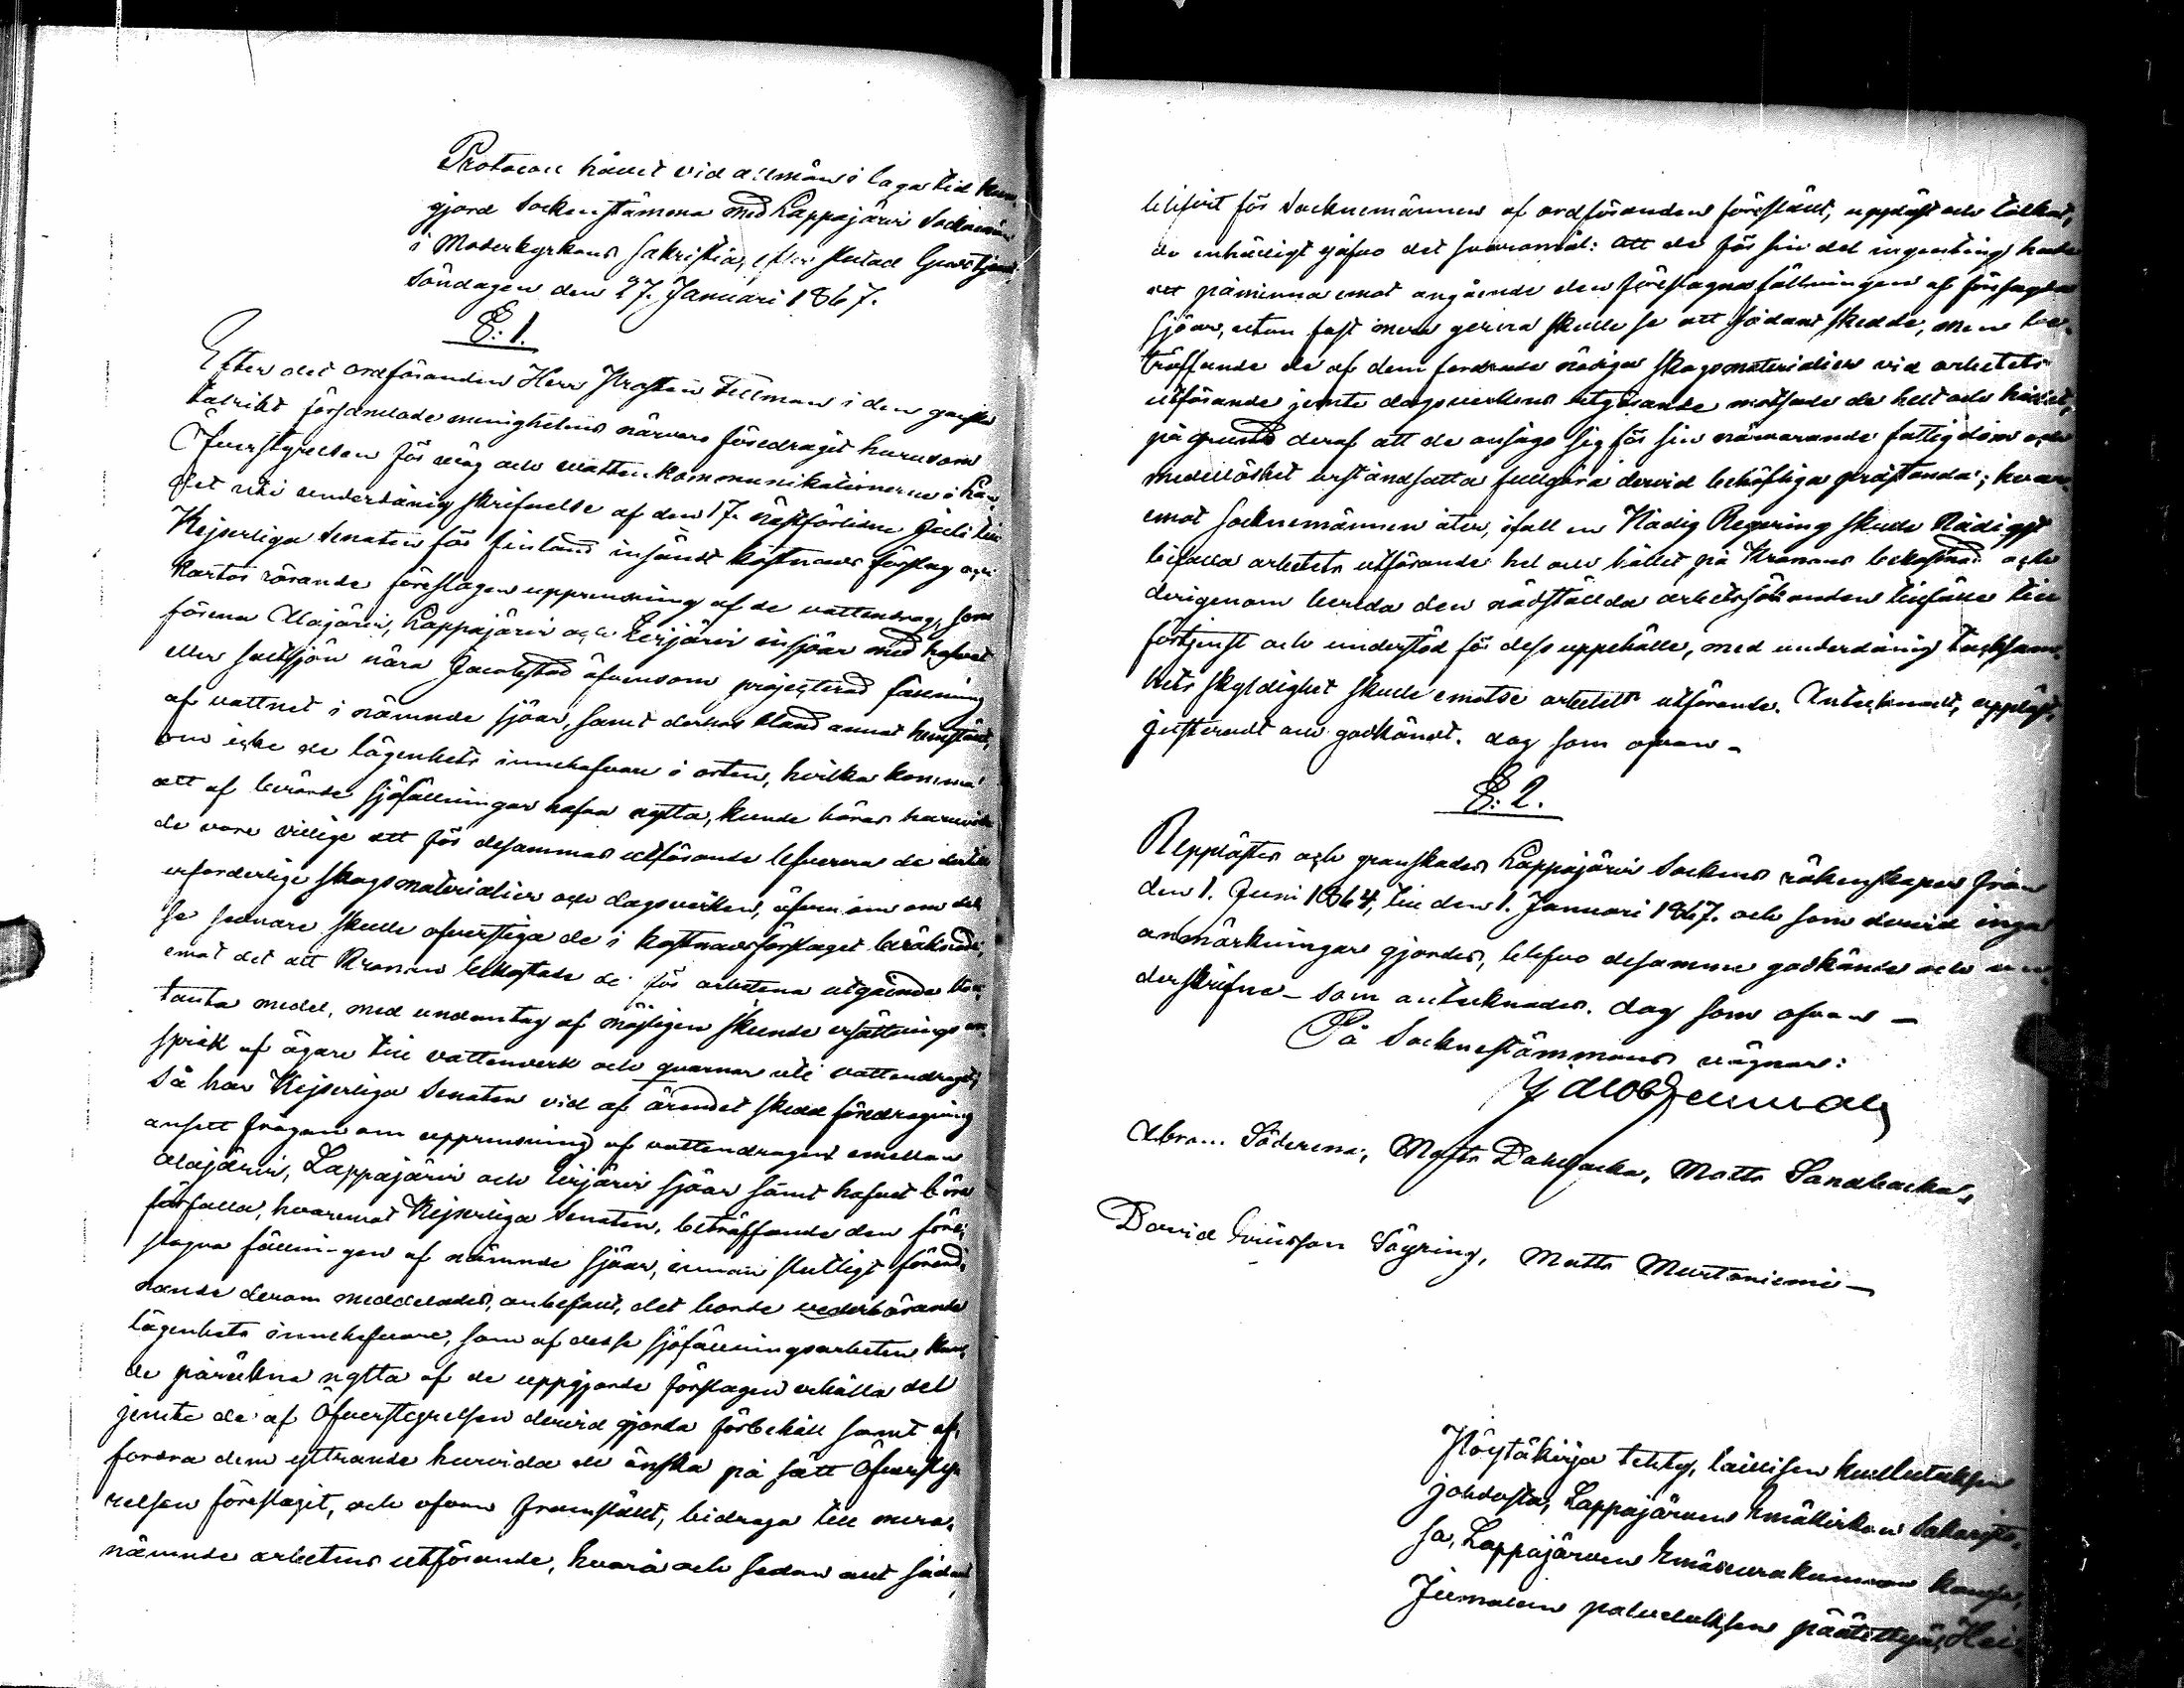 Protocoll hållet vid allmän i laga tid kun-
gjord Sockenstämma med Lappajärvi Socknemän
i Moderkyrkans Sakristia, efter slutad Gudstjenst,
Söndagen den 27. Januari 1867.
§: 1.
Efter det ordföranden Herr Prosten Fellman i den
talrikt församlade menighetens närvaro föredragit hurusom
Öfverstyrelsen för väg och vattenkommunikationerne i
det uti underdånig skrifvelse af den 17. nästförlidne Juli till
Kejserliga Senaten för Finland insändt kostnads förslag och
kartor rörande föreslagen upprensning af de vattendrag, som
förena Alajärvi, Lappajärvi och Evijärvi insjöar med hafvet
eller saltsjön nära Jacobstad äfvensom projecterad fällning
af vattnet i nämnde sjöar, samt derhos bland annat hemstält,
om icke de lägenhets innehafvare i orten, hvilka komma
att af berörde sjöfällningar hafva nytta, kunde höras huruvida
de vore villige att för desammas utförande lefverera de dertill
erforderlige skogsmaterialier och dagsverken, äfven om det
se sednare skulle öfverstiga de i kostnadsförslaget beräknade,
emot det att Kronan bekostade de för arbetena utgående kon-
tanta medel, med undantag af möjligen skeende ersättnings an-
språk af ägare till vattenverk och qvarnar uti vattendraget;
Så har Kejserliga Senaten vid af ärendet skedd föredragning
ansett frågan om upprensning af vattendragen emellan
Alajärvi, Lappajärvi och Evijärvi sjöar samt hafvet böra
förfalla, hvaremot Kejserliga Senaten, beträffande den före-
slagna fällningen af nämnde sjöar, innan slutligt förord-
nande derom meddelades, anbefalt, det borde vederbörande
lägenhets innehafvare, som af desse sjöfällningsarbeten kun-
de påräkna nytta af de uppgjorde förslagen erhålla del
jemte de af Öfverstyrelsen dervid gjorda förbehåll samt af-
fordra dem yttrande huruvida de önska på sätt Öfversty-
relsen föreslagit, och ofvan framstält, bidraga till mera-
nämnde arbetens utförande, hvarå och sedan allt sådant
blifvit för Socknemännen af ordföranden förestält, uppläst och tolkat,
de enhälligt gåfvo det svaromål: att de för sin del ingenting hade
att påminna emot angående den föreslagna fällningen af försagda
sjöar, utan fast mera gerna skulle se att sådant skedde, men be-
träffande de af dem fordrade nödiga skogsmaterialier vid arbetets
utförande jemte dagsverkens utgörande motsade de helt och hållet,
på grund deraf att de ansågo sig för sin närvarande fattigdom och
medellöshet urståndsatta fullgöra dervid behöfliga præstanda; hvar-
emot Socknemännen åter, ifall en Nådig Regering skulle Nådigst
bifalla arbetets utförande hel och hållet på Kronans bekostnad och
derigenom bereda den nödställda arbetssökanden tillfälle till
förtjenst och understöd för dess uppehälle, med underdånig tacksam-
hets skyldighet skulle emotse arbetets utförande. Antecknadt, uppläst,
justeradt och godkändt. dag som ofvan –
§: 2.
Upplästes och granskades Lappajärvi Sockens räkenskaper från
den 1. Juni 1864, till den 1. Januari 1867. och som dervid inga
anmärkningar gjordes, blefvo desamma godkände och un-
derskrifne – som antecknades. dag som ofvan –
På Socknestämmans vägnar:
Jacob Fellman
Söderena, Matts Dahlbacka, Matts Sandbacka,
David Ericsson Säyring, Matts Murtoniemi –
Pöytäkirja tehty, laillisen kuulutuksen
johdosta, Lappajärven Emäkirkon Sakaris-
sa, Lappajärven Emäseurakunnan kanssa,
Jumalan palveluksen päätettyä,